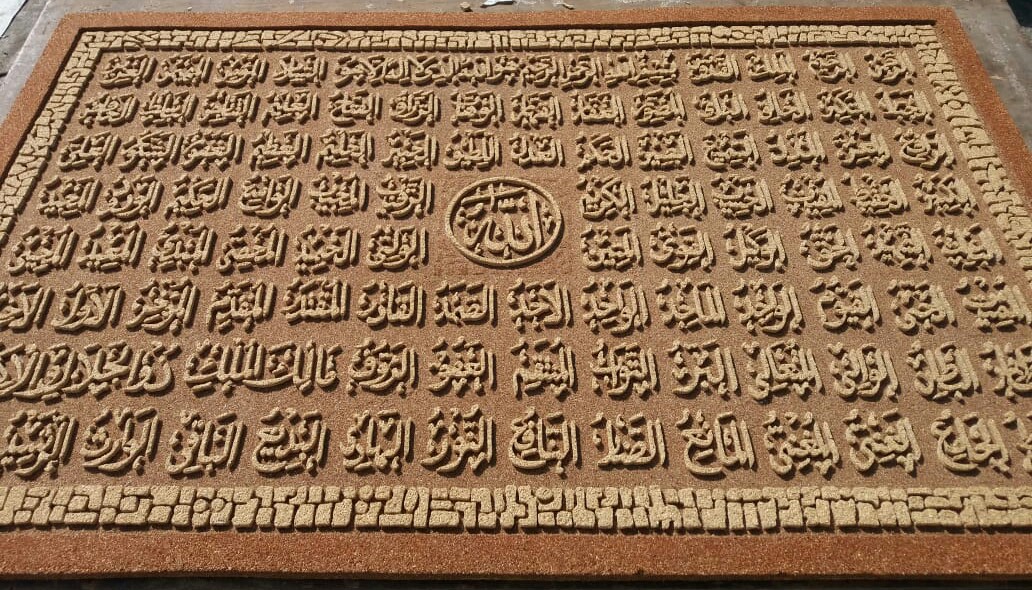 الرحمن الرحيم الملك القدوس بسم الله الرحمن الرحيم هو الله الذي لا اله الا هو السلام المؤمن المهيمن العزيز
الجبار المتكبر الخالق البارئ المصور الغفار القهار الوهاب الرزاق الفتاح العليم القابض الباسط الخافض
الرافع المعز المذل السميع البصير الحكم العدل اللطيف الخبير الحليم العظيم الغفور الشكور العلي
الكبير الحفيظ المقيت الحسيب الجليل الكريم الرقيب المجيب الواسع الحكيم الودود المجيد
الله
الباعث الشهيد الحق الوكيل القوي المتين الولي الحميد المحصي المبدئ المعيد المحيي
المميت الحي القيوم الواجد الماجد الواحد الاحد الصمد القادر المقتدر المقدم المؤخر الاول الاخر
الباطن الوالي المتعالي البر التواب المنتقم العفو الرؤف مالك الملك ذو الجلال والاك
الجامع الغني المغني المانع الضار النافع النور الهادي البديع الباقي الوارث الرشيد